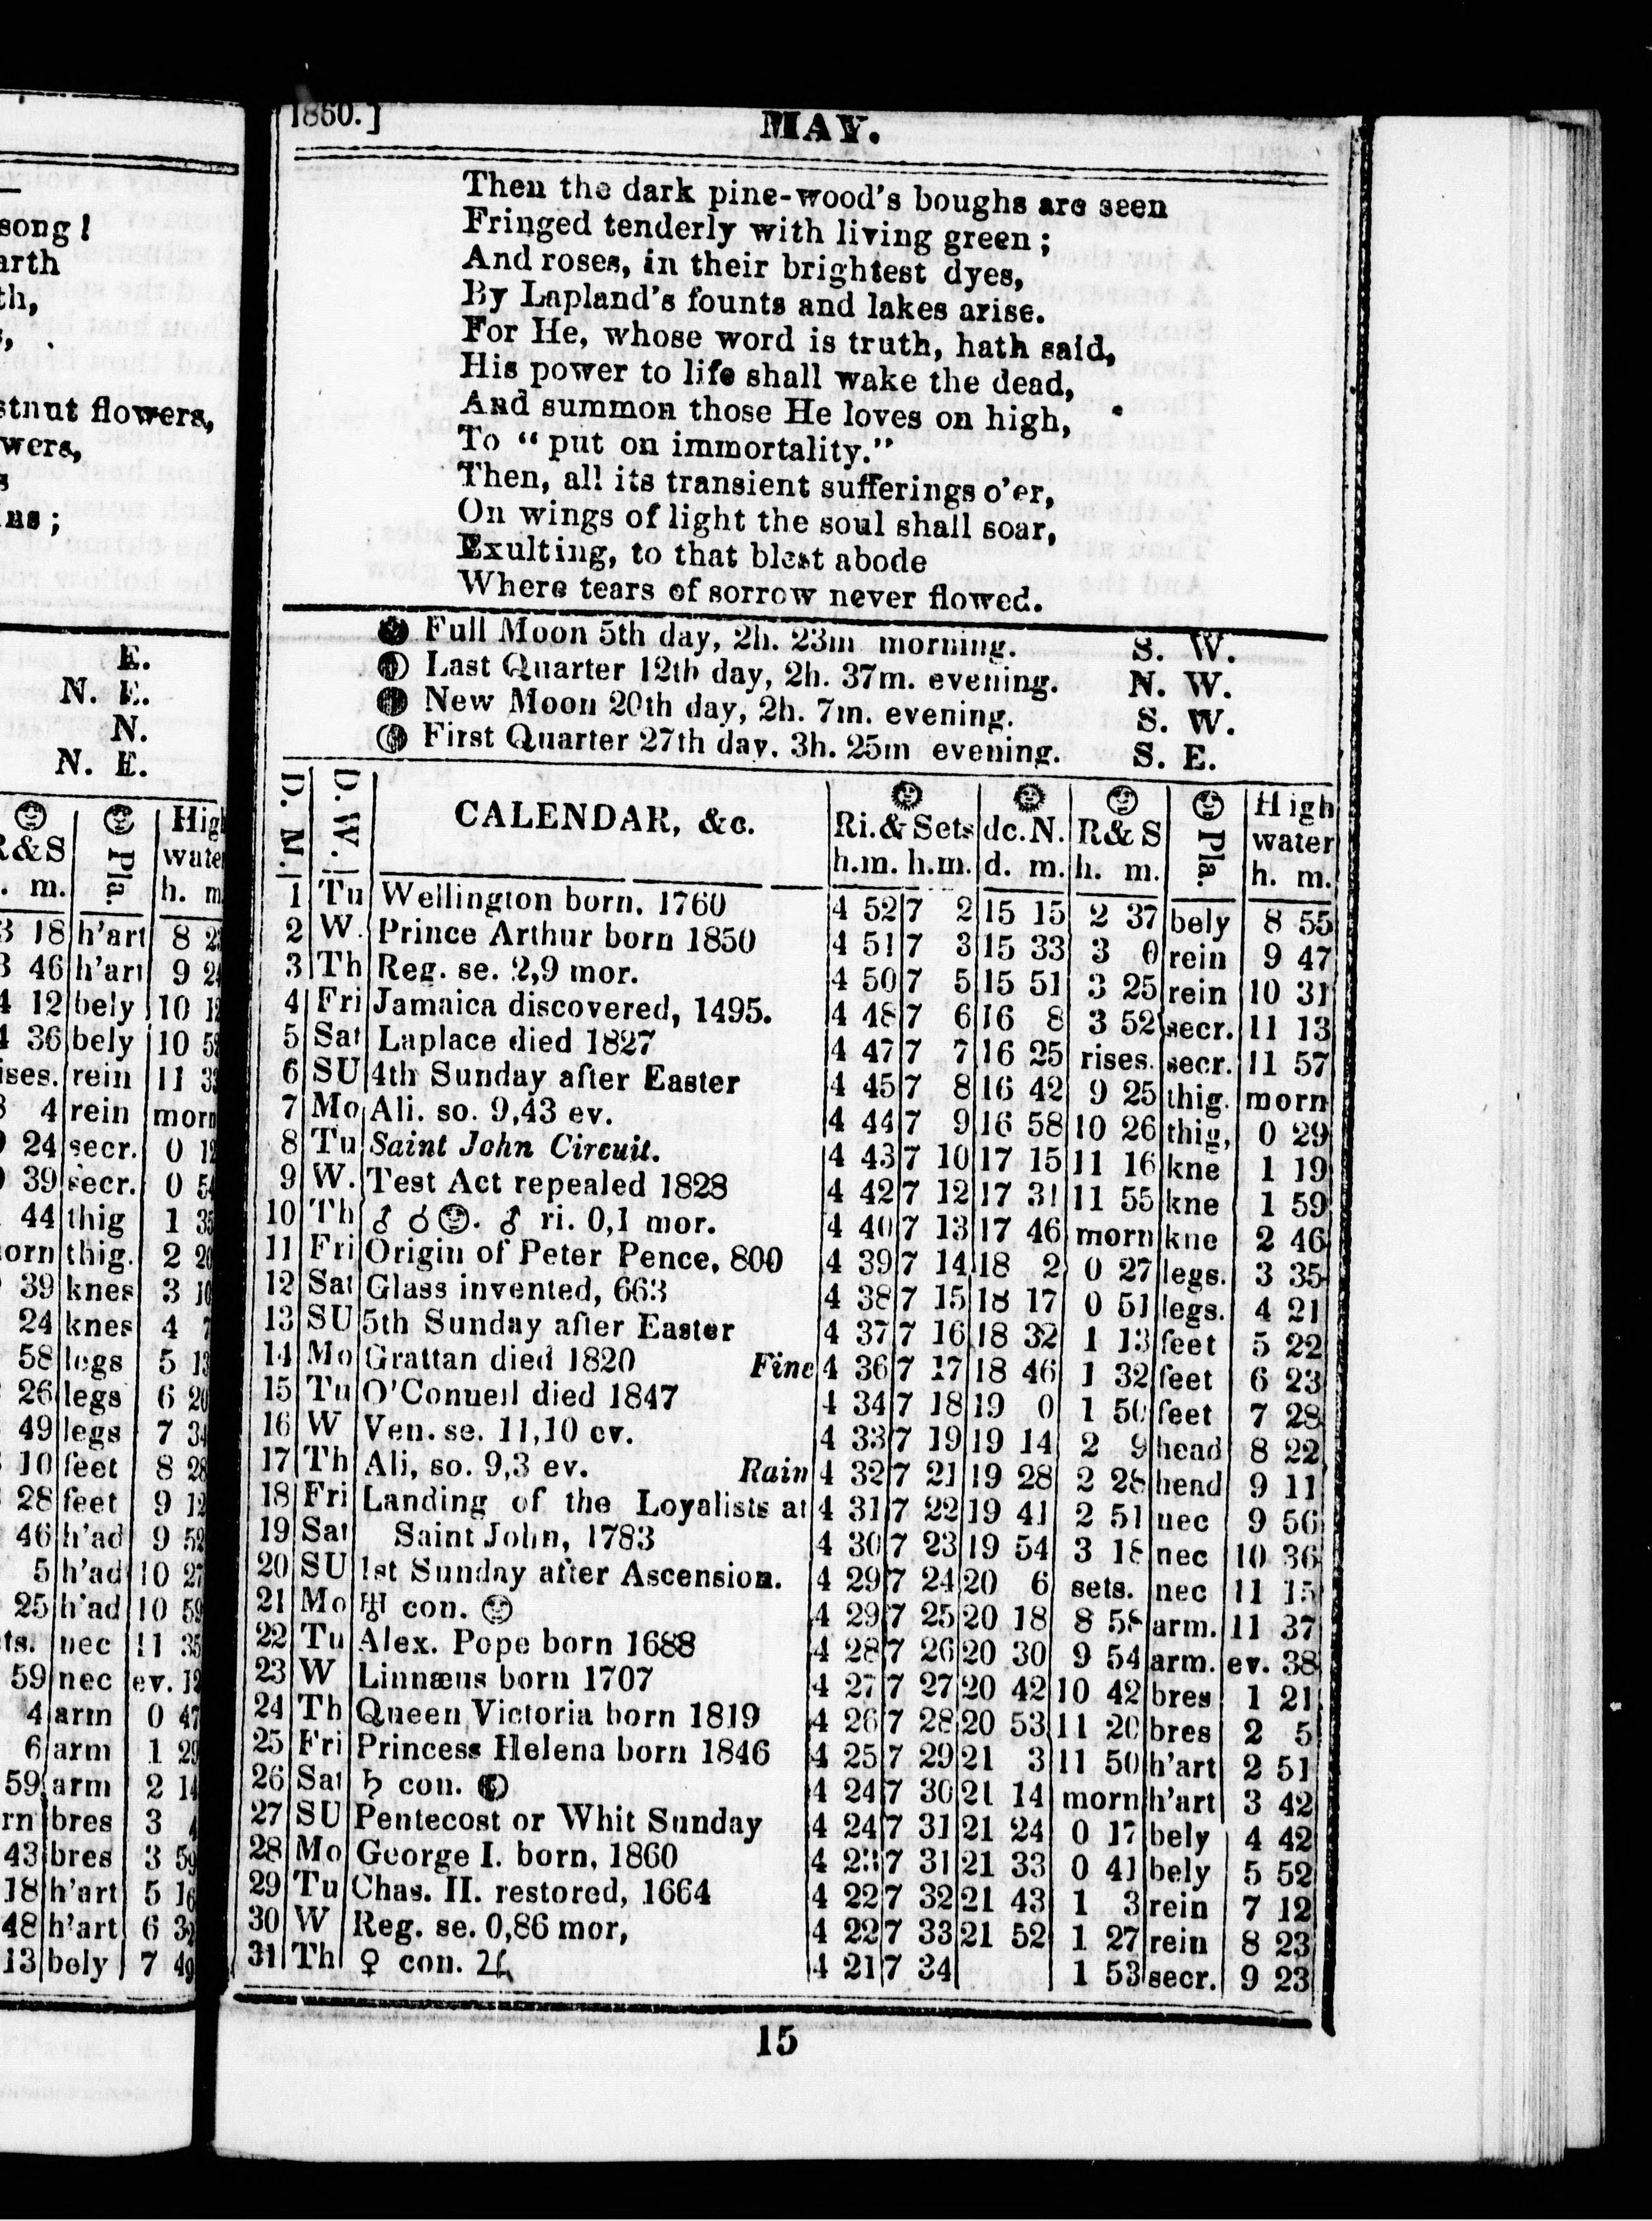 song!
arth
th,
stnut flowers,
wers,
E.
N. E.
N.
N. E.
R&S Pla. High water
. m. h. m.
3 18 h'art 8
3 46 h'art 9
4 12 bely 10
4 36 bely 10
ises. rein 11
8 4 rein morn
24 secr. 0
39 secr. 0
44 thig 1
orn thig. 2
39 knes 3
24 knes 4
58 legs 5
26 legs 6
49 legs 7
10 feet 8
28 feet 9
46 h'ad 9
5 h'ad 10
25 h'ad 10
ts. nec 11
59 nec ev.
4 arm 0
6 arm 1
59 arm 2
rn bres 3
43 bres 3
18 h'art 5
48 h'art 6
13 bely 7
1860.] MAY.
Then the dark pine-wood's boughs are seen
Fringed tenderly with living green;
And roses, in their brightest dyes,
By Lapland's founts and lakes arise.
For He, whose word is truth, hath said,
His power to life shall wake the dead,
And summon those He loves on high,
To "put on immortality."
Then, all its transient sufferings o'er,
On wings of light the soul shall soar,
Exulting, to that blest abode
Where tears of sorrow never flowed.
Full Moon 5th day, 2h. 23m morning. S. W.
Last Quarter 12th day, 2h. 37m. evening. N. W.
New Moon 20th day, 2h. 7m. evening. S. W.
First Quarter 27th day. 3h. 25m evening. S. E.
D. M. D. W. CALENDAR, &c. Ri.& Sets dc.N. R&S Pla. High water
h.m. h.m. d. m. h. m. h. m.
1 Tu Wellington born, 1760 4 52 7 2 15 15 2 37 bely 8 55
2 W. Prince Arthur born 1850 4 51 7 3 15 33 3 0 rein 9 47
3 Th Reg. se. 2,9 mor. 4 50 7 5 15 51 3 25 rein 10 31
4 Fri Jamaica discovered, 1495. 4 48 7 6 16 8 3 52 secr. 11 13
5 Sat Laplace died 1827 4 47 7 7 16 25 rises. secr. 11 57
6 SU 4th Sunday after Easter 4 45 7 8 16 42 9 25 thig. morn
7 Mo Ali. so. 9,43 ev. 4 44 7 9 16 58 10 26 thig, 0 29
8 Tu Saint John Circuit. 4 43 7 10 17 15 11 16 kne 1 19
9 W. Test Act repealed 1828 4 42 7 12 17 31 11 55 kne 1 59
10 Th ♂ ☌ ☺. ♂ ri. 0,1 mor. 4 40 7 13 17 46 morn kne 2 46
11 Fri Origin of Peter Pence, 800 4 39 7 14 18 2 0 27 legs. 3 35
12 Sat Glass invented, 663 4 38 7 15 18 17 0 51 legs. 4 21
13 SU 5th Sunday after Easter 4 37 7 16 18 32 1 13 feet 5 22
14 Mo Grattan died 1820 Fine 4 36 7 17 18 46 1 32 feet 6 23
15 Tu O'Connell died 1847 4 34 7 18 19 0 1 50 feet 7 28
16 W Ven. se. 11,10 ev. 4 33 7 19 19 14 2 9 head 8 22
17 Th Ali, so. 9,3 ev. Rain 4 32 7 21 19 28 2 28 head 9 11
18 Fri Landing of the Loyalists at 4 31 7 22 19 41 2 51 nec 9 56
19 Sat Saint John, 1783 4 30 7 23 19 54 3 18 nec 10 36
20 SU 1st Sunday after Ascension. 4 29 7 24 20 6 sets. nec 11 15
21 Mo ♅ con. ☺ 4 29 7 25 20 18 8 58 arm. 11 37
22 Tu Alex. Pope born 1688 4 28 7 26 20 30 9 54 arm. ev. 38
23 W Linnæus born 1707 4 27 7 27 20 42 10 42 bres 1 21
24 Th Queen Victoria born 1819 4 26 7 28 20 53 11 20 bres 2 5
25 Fri Princess Helena born 1846 4 25 7 29 21 3 11 50 h'art 2 51
26 Sat ♄ con. 4 24 7 30 21 14 morn h'art 3 42
27 SU Pentecost or Whit Sunday 4 24 7 31 21 24 0 17 bely 4 42
28 Mo George I. born, 1860 4 23 7 31 21 33 0 41 bely 5 52
29 Tu Chas. II. restored, 1664 4 22 7 32 21 43 1 3 rein 7 12
30 W Reg. se. 0,86 mor, 4 22 7 33 21 52 1 27 rein 8 23
31 Th ♀ con. ♃ 4 21 7 34 1 53 secr. 9 23
15